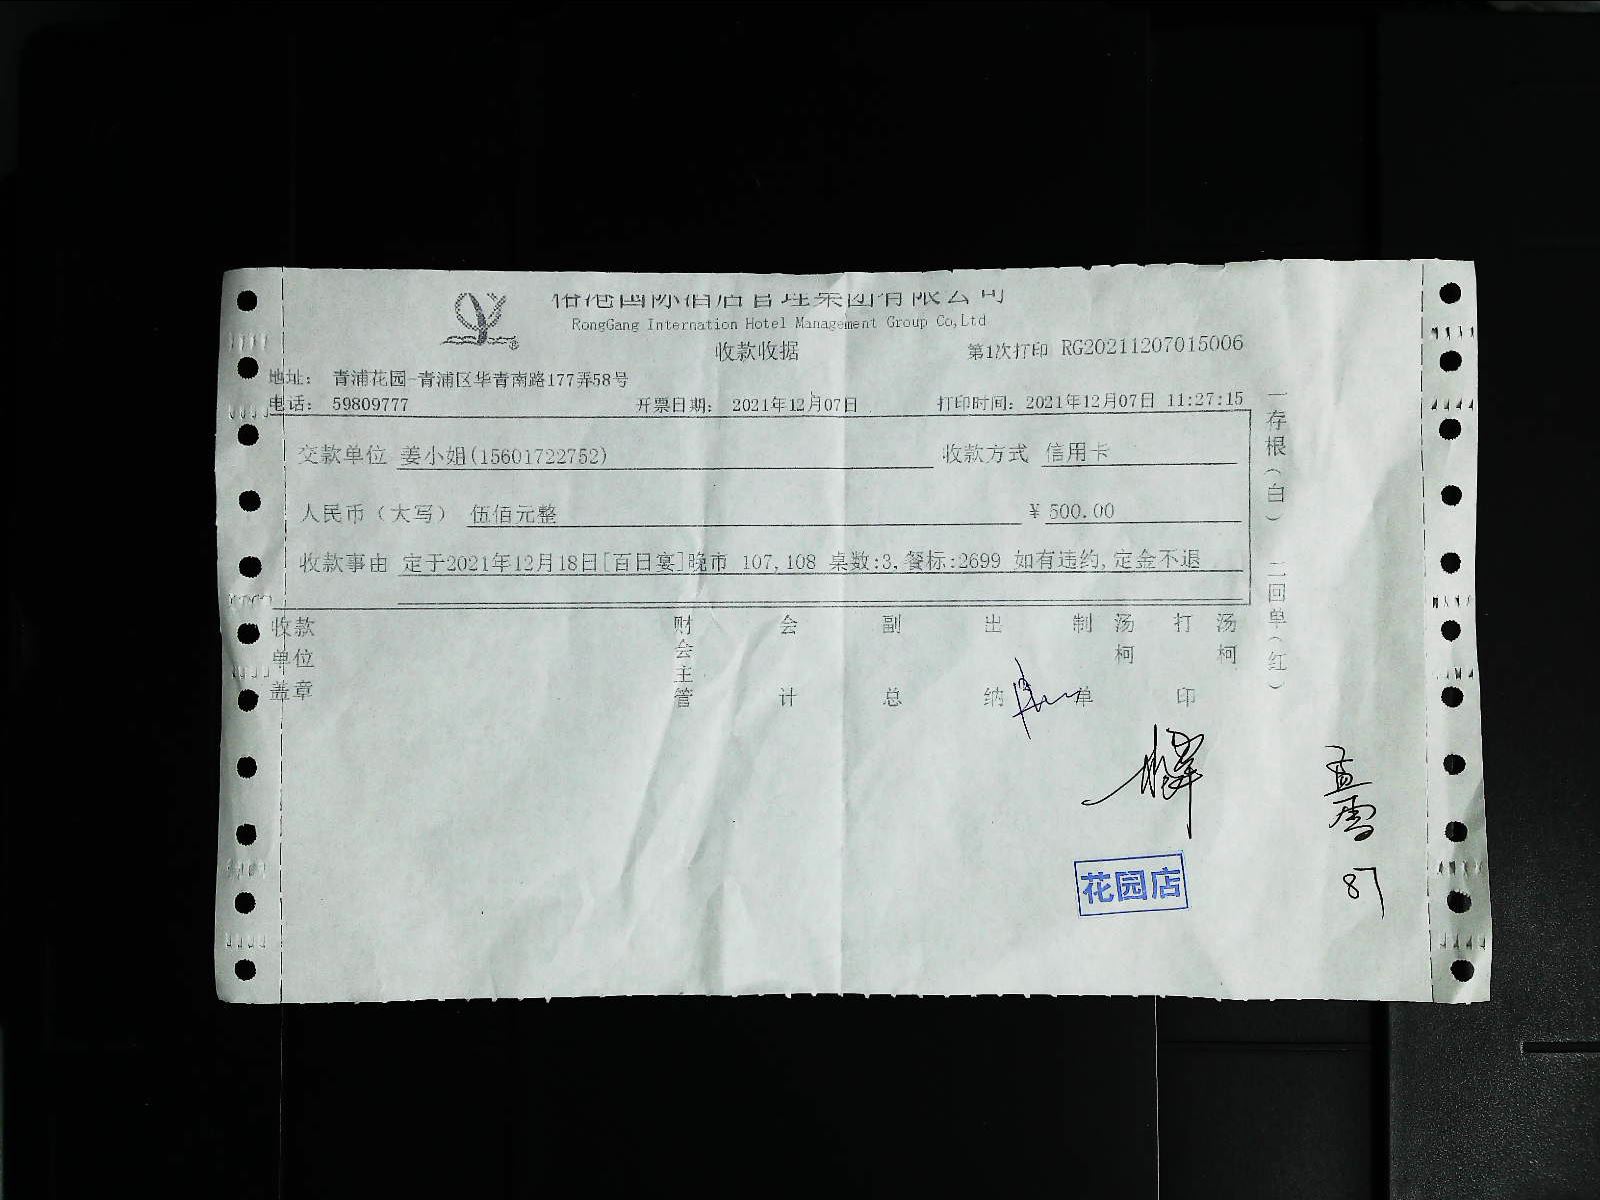 国际酒店管理集团有限公司
RongGang Internation Hotel Management Group Co,Ltd
收款收据
第1次打印 RG20211207015006
地址： 青浦花园-青浦区华青南路177弄58号
电话： 59809777 开票日期： 2021年12月07日 打印时间：2021年12月07日 11:27:15
交款单位 姜小姐(15601722752) 收款方式 信用卡
人民币（大写） 伍佰元整 ¥ 500.00
收款事由 定于2021年12月18日[百日宴]晚市 107,108 桌数:3,餐标:2699 如有违约,定金不退
收款单位盖章 财会主管 会计 副总 出纳 制单 汤柯 打印 汤柯
一存根（白） 二回单（红）
花园店
87